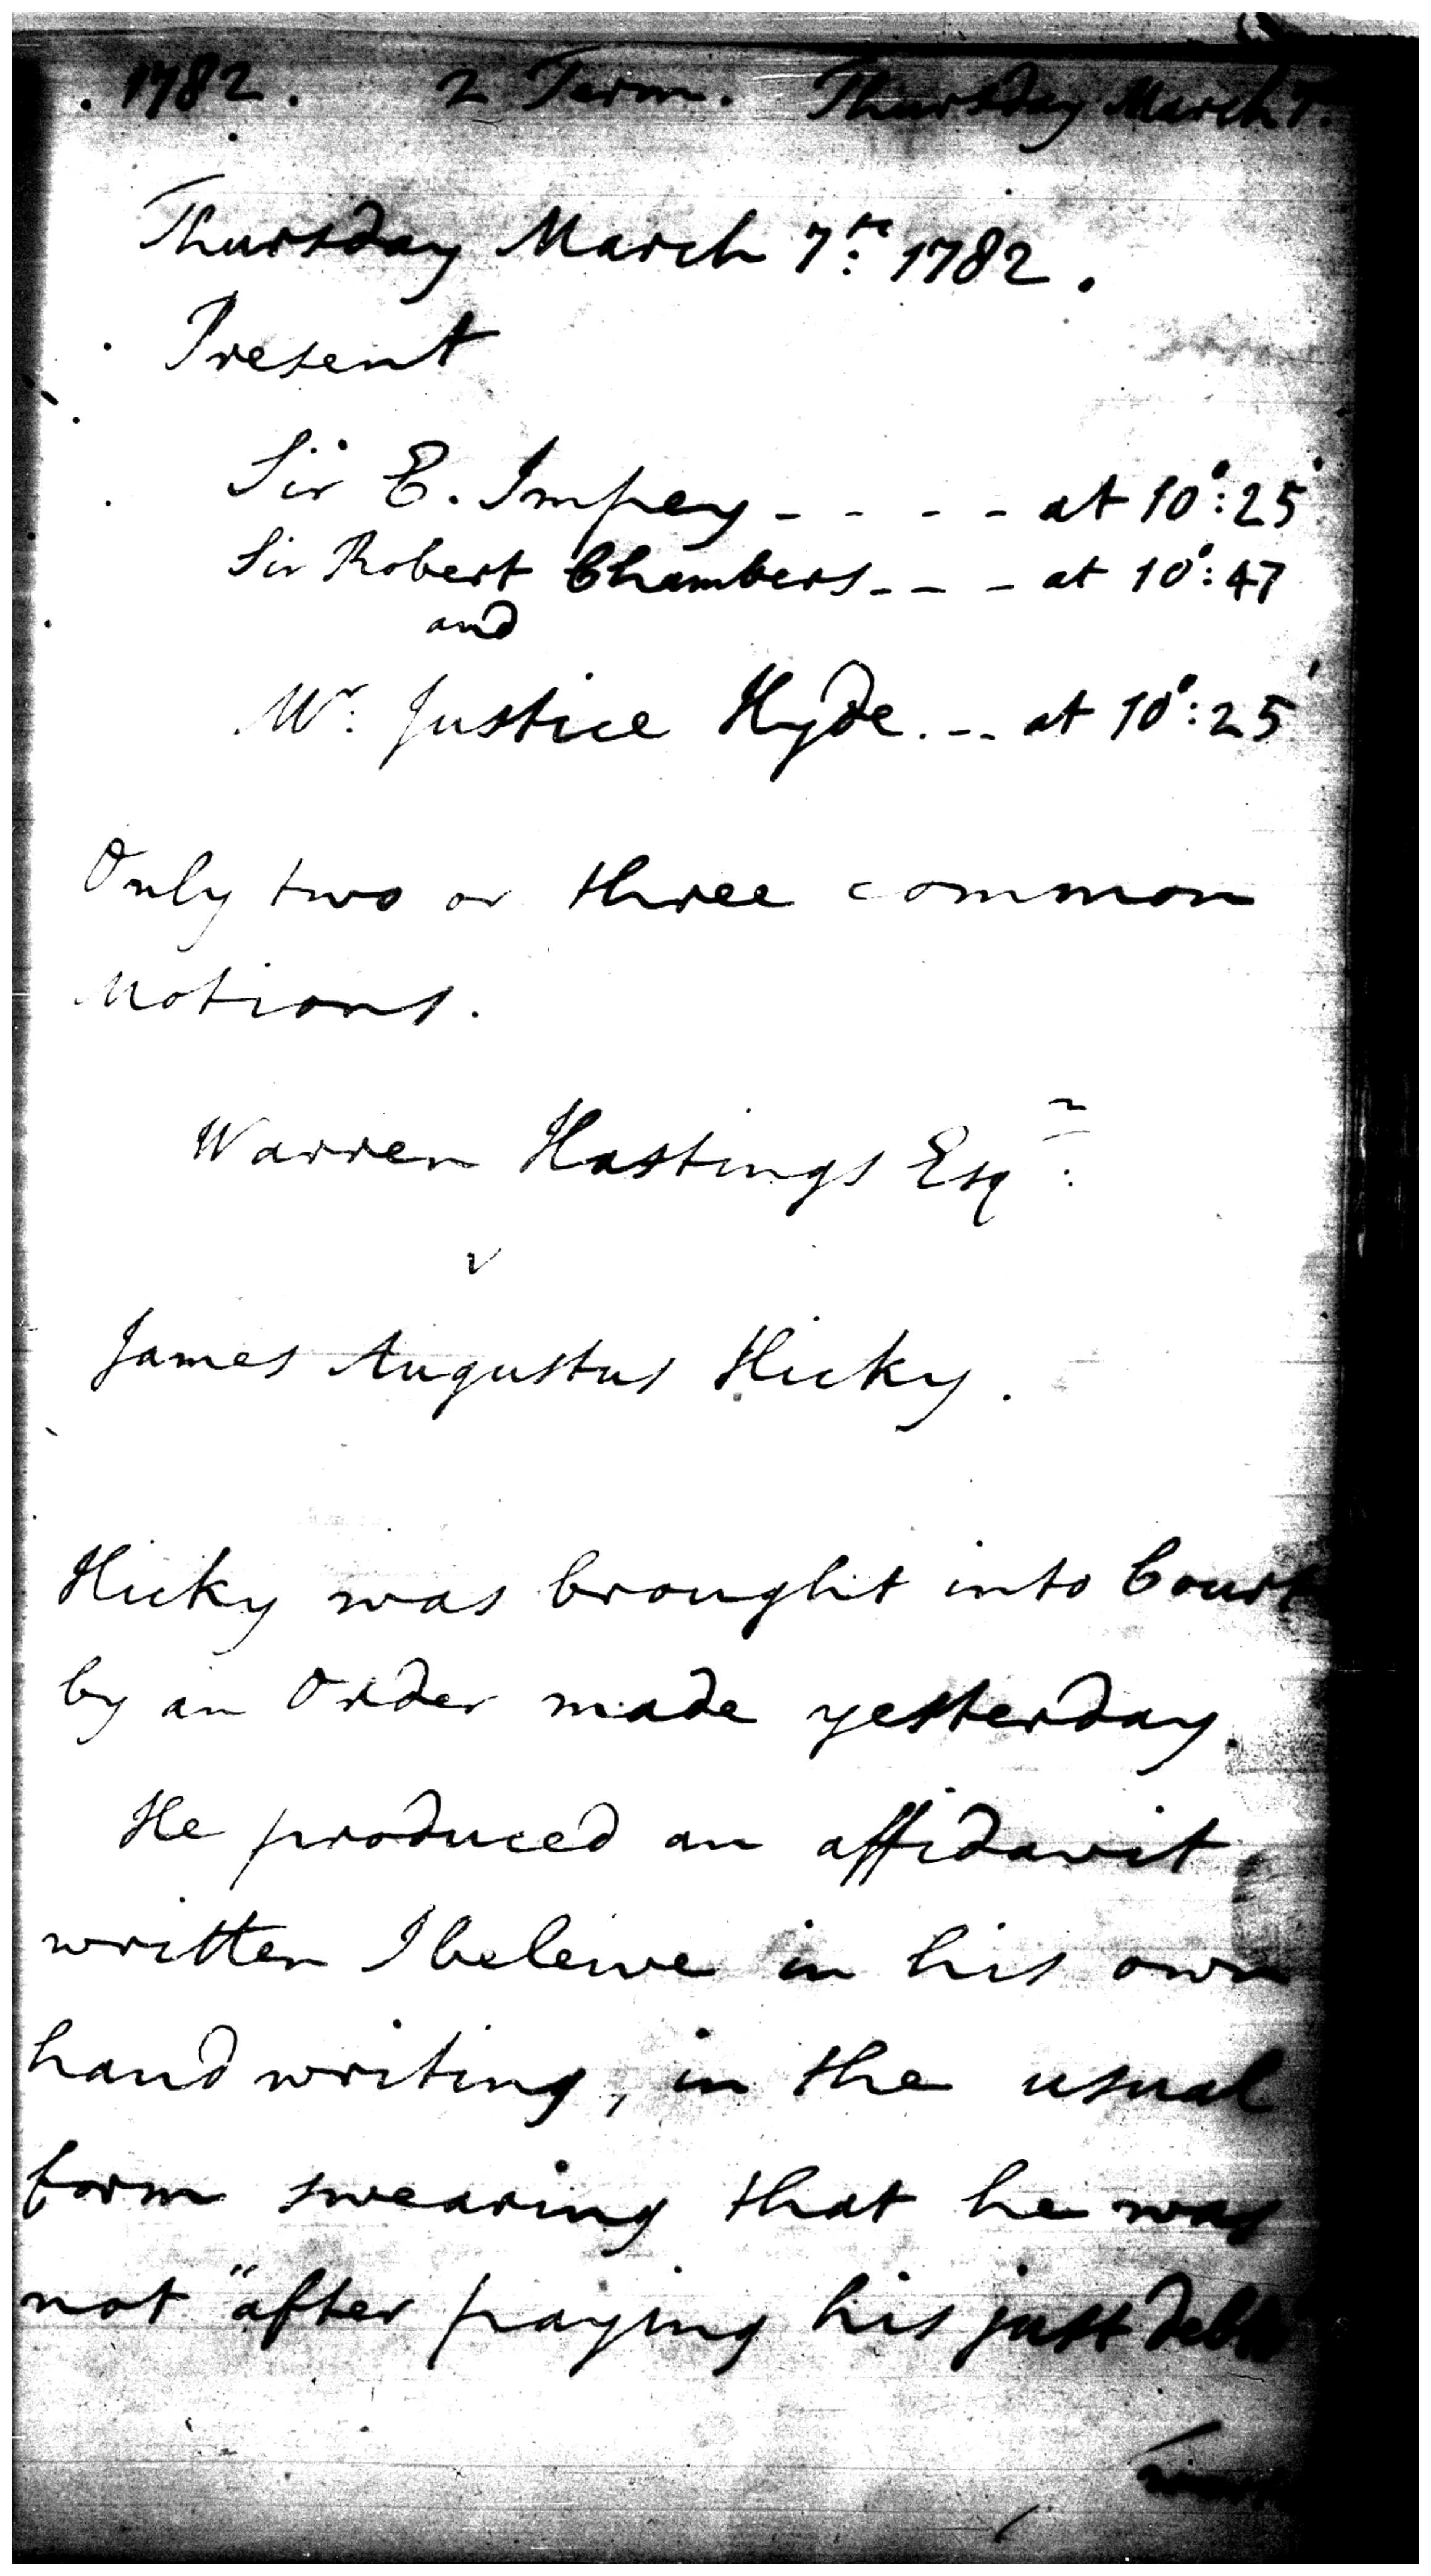 . 1782. 2 Term. Thursday March 7.
Thursday March 7th: 1782.
Present
Sir E. Impey - - - - at 10°: 25'
Sir Robert Chambers - - - at 10°: 47
and
Mr: Justice Hyde. - - at 10°: 25'
Only two or three common
Motions.
Warren Hastings Esqr:
v
James Augustus Hicky.
Hicky was brought into Court
by an Order made yesterday.
He produced an affidavit
written I beleive in his own
hand writing, in the usual
form swearing that he was
not "after paying his just debts